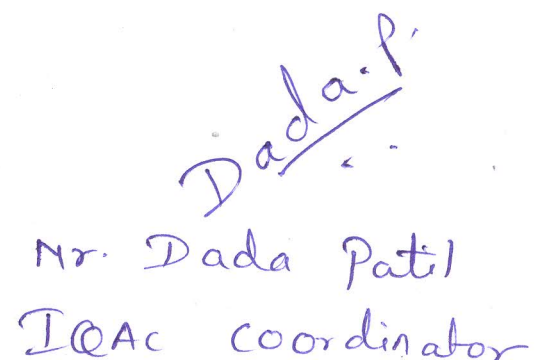 Dada.P.
Mr. Dada Patil
IQAC coordinator